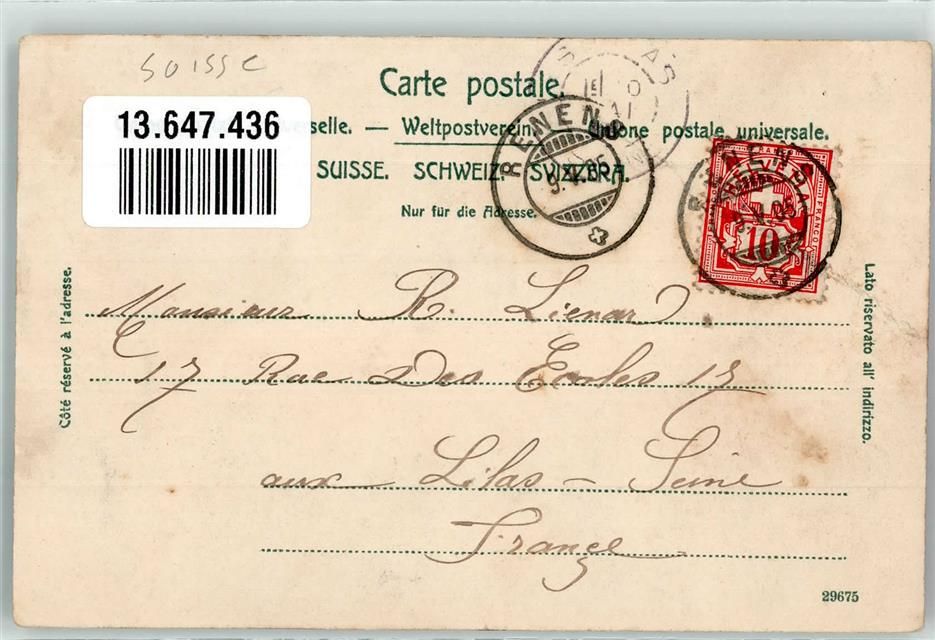 suisse
Carte postale.
13.647.436
selle. — Weltpostverein. — Unione postale universale.
SUISSE. SCHWEIZ. SVIZZERA.
Nur für die Adresse.
RENENS
9.V.05
RENENS
9.V.05
FRANCO
10
FRANCO
Côté réservé à l'adresse.
Lato riservato all' indirizzo.
Monsieur R. Lienard
17 Rue Des Ecoles 17
aux Lilas – Seine
France
29675